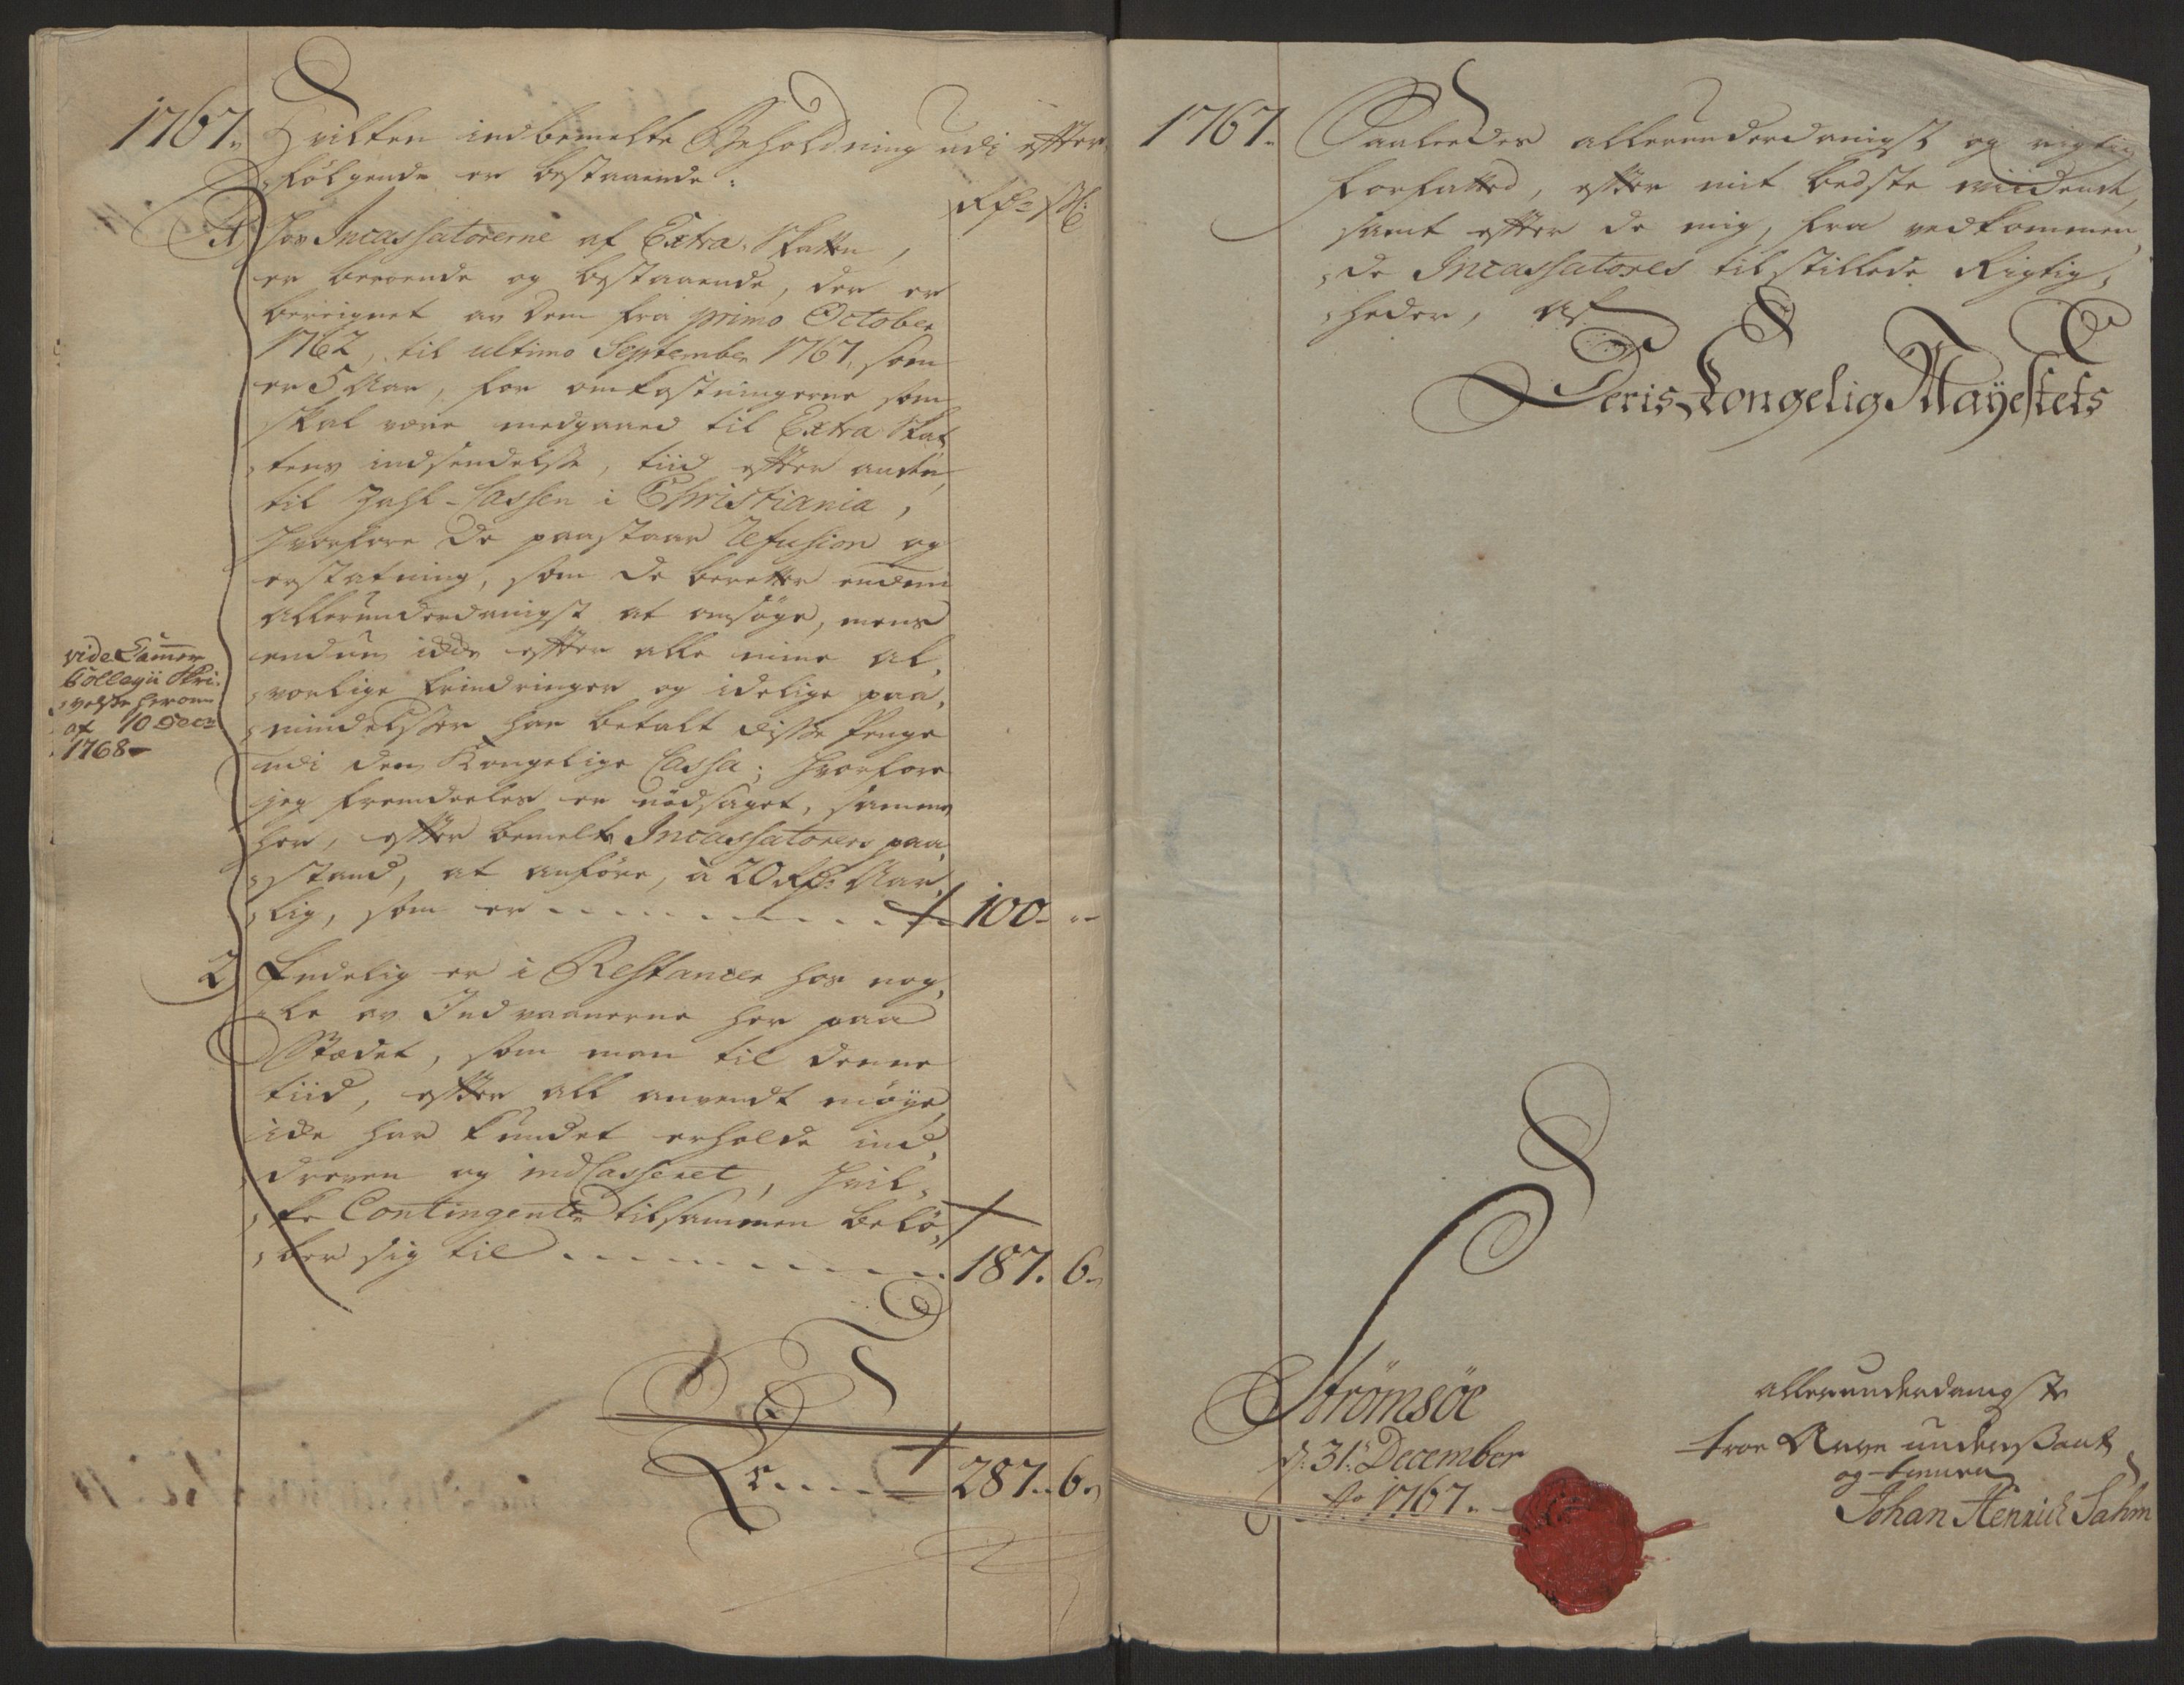 1767. Hvilken indbemelte Beholdning udi efter
følgende er bestaaende:
Rd: ß:
1 Hos Incassatorerne af Extra-Skatten,
er beroende og bestaaende, der er
beregnet av dem fra primo October
1762, til ultimo September 1767, som
er 5 Aar, for omkostningerne som
skal være medgaaed til Extra Skat
tens indsendelse, tiid efter anden,
til Zahl-Cassen i Christiania,
hvorfore de paastaar Refusion og
erstatning, som de beretter endnu
allerunderdanigst at ansøge, mens
endnu icke efter alle mine al,
vorlige Erindringer og idelige paa,
mindelser har betalt disse Penge
udi den Kongelige Cassa; hvorfore
jeg fremdeeles er nødsaget, samme
her, efter bemelte Incassatorers paa,
stand, at anføre, à 20 Rd: Aar,
lig, som er - - - - - - - - 100 - "-
vide Cammer
Collegii Skri-
velse herom
af 10 Decr
1768-
2 Endelig er i Restancer hos nog,
le av Indvaanerne her paa
Stædet, som man til denne
tiid, efter all anvendt møye,
icke har kundet erholde ind,
dreven og indCasseret, hvil,
ke Contingenter tilsammen belø,
ber sig til - - - - - - - - 187. 6-
- - - - 287.. 6-
1767. Saaledes allerunderdanigst og rigtig
forfatted, efter mit bedste vidende,
samt efter de mig, fra vedkommen,
de Incassatores tilstillede Rigtig,
heder, af
Deris Kongelig Mayestets
Strømsøe
d: 31. December
Ao 1767.
allerunderdanigste
troe Arve undersaat
og tienere
Johan Henrich Sahm